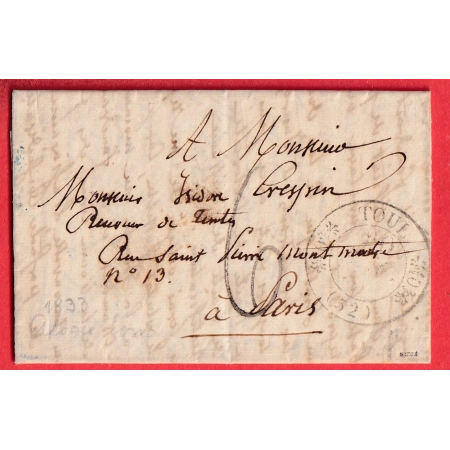 A Monsieur
Monsieur Isidore Crespin
de
Rue Saint Pierre Mont matre
N° 13.
à Paris
6
TOUL
(52)
1833